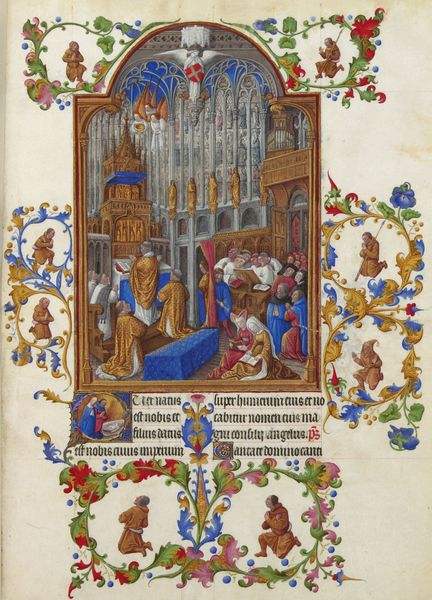 Puer natus
est nobis et
filius datus
est nobis cuius imperium
super humerum eius et vo
cabitur nomen eius ma
gni consilii angelus. p̄s
Cantate domino canti